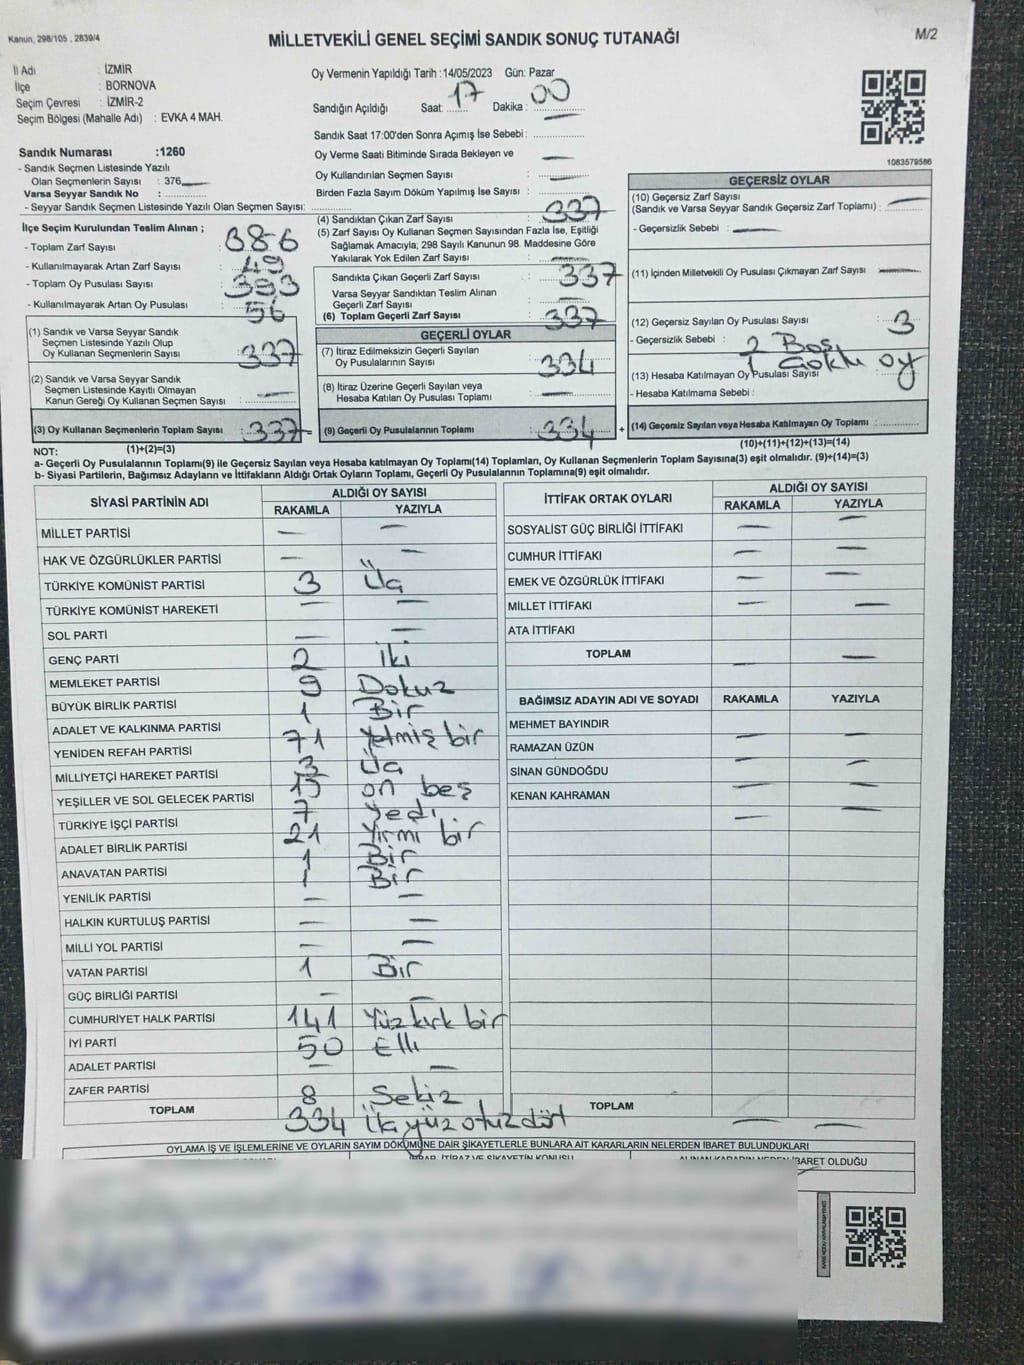 Kanun, 298/105 , 2839/4
MİLLETVEKİLİ GENEL SEÇİMİ SANDIK SONUÇ TUTANAĞI
M/2
İl Adı : İZMİR
İlçe : BORNOVA
Seçim Çevresi : İZMİR-2
Seçim Bölgesi (Mahalle Adı) : EVKA 4 MAH.
Oy Vermenin Yapıldığı Tarih :14/05/2023 Gün: Pazar
Sandığın Açıldığı Saat: 17 Dakika : 00
Sandık Saat 17:00'den Sonra Açımış İse Sebebi :
Oy Verme Saati Bitiminde Sırada Bekleyen ve
Oy Kullandırılan Seçmen Sayısı : —
Birden Fazla Sayım Döküm Yapılmış İse Sayısı : —
1083579586
Sandık Numarası :1260
- Sandık Seçmen Listesinde Yazılı
Olan Seçmenlerin Sayısı : 376
Varsa Seyyar Sandık No :
- Seyyar Sandık Seçmen Listesinde Yazılı Olan Seçmen Sayısı:
İlçe Seçim Kurulundan Teslim Alınan ;
- Toplam Zarf Sayısı : 386
- Kullanılmayarak Artan Zarf Sayısı : 49
- Toplam Oy Pusulası Sayısı : 393
- Kullanılmayarak Artan Oy Pusulası : 56
(1) Sandık ve Varsa Seyyar Sandık
Seçmen Listesinde Yazılı Olup
Oy Kullanan Seçmenlerin Sayısı : 337
(2) Sandık ve Varsa Seyyar Sandık
Seçmen Listesinde Kayıtlı Olmayan
Kanun Gereği Oy Kullanan Seçmen Sayısı : —
(3) Oy Kullanan Seçmenlerin Toplam Sayısı : 337 =
(1)+(2)=(3)
(4) Sandıktan Çıkan Zarf Sayısı : 337
(5) Zarf Sayısı Oy Kullanan Seçmen Sayısından Fazla İse, Eşitliği
Sağlamak Amacıyla; 298 Sayılı Kanunun 98. Maddesine Göre
Yakılarak Yok Edilen Zarf Sayısı : —
Sandıkta Çıkan Geçerli Zarf Sayısı : 337
Varsa Seyyar Sandıktan Teslim Alınan
Geçerli Zarf Sayısı : —
(6) Toplam Geçerli Zarf Sayısı : 337
GEÇERLİ OYLAR
(7) İtiraz Edilmeksizin Geçerli Sayılan
Oy Pusulalarının Sayısı : 334
(8) İtiraz Üzerine Geçerli Sayılan veya
Hesaba Katılan Oy Pusulası Toplamı : —
(9) Geçerli Oy Pusulalarının Toplamı : 334 +
GEÇERSİZ OYLAR
(10) Geçersiz Zarf Sayısı
(Sandık ve Varsa Seyyar Sandık Geçersiz Zarf Toplamı) : —
- Geçersizlik Sebebi : —
(11) İçinden Milletvekili Oy Pusulası Çıkmayan Zarf Sayısı —
(12) Geçersiz Sayılan Oy Pusulası Sayısı : 3
- Geçersizlik Sebebi : 2 Boş,
1 Çoklu oy
(13) Hesaba Katılmayan Oy Pusulası Sayısı
- Hesaba Katılmama Sebebi :
(14) Geçersiz Sayılan veya Hesaba Katılmayan Oy Toplamı :
(10)+(11)+(12)+(13)=(14)
NOT:
a- Geçerli Oy Pusulalarının Toplamı(9) ile Geçersiz Sayılan veya Hesaba katılmayan Oy Toplamı(14) Toplamları, Oy Kullanan Seçmenlerin Toplam Sayısına(3) eşit olmalıdır. (9)+(14)=(3)
b- Siyasi Partilerin, Bağımsız Adayların ve İttifakların Aldığı Ortak Oyların Toplamı, Geçerli Oy Pusulalarının Toplamına(9) eşit olmalıdır.
SİYASİ PARTİNİN ADI ALDIĞI OY SAYISI
RAKAMLA YAZIYLA
MİLLET PARTİSİ — —
HAK VE ÖZGÜRLÜKLER PARTİSİ — —
TÜRKİYE KOMÜNİST PARTİSİ 3 Üç
TÜRKİYE KOMÜNİST HAREKETİ — —
SOL PARTİ — —
GENÇ PARTİ 2 İki
MEMLEKET PARTİSİ 9 Dokuz
BÜYÜK BİRLİK PARTİSİ 1 Bir
ADALET VE KALKINMA PARTİSİ 71 Yetmiş bir
YENİDEN REFAH PARTİSİ 3 Üç
MİLLİYETÇİ HAREKET PARTİSİ 15 on beş
YEŞİLLER VE SOL GELECEK PARTİSİ 7 Yedi
TÜRKİYE İŞÇİ PARTİSİ 21 Yirmi bir
ADALET BİRLİK PARTİSİ 1 Bir
ANAVATAN PARTİSİ 1 Bir
YENİLİK PARTİSİ — —
HALKIN KURTULUŞ PARTİSİ — —
MİLLİ YOL PARTİSİ — —
VATAN PARTİSİ 1 Bir
GÜÇ BİRLİĞİ PARTİSİ — —
CUMHURİYET HALK PARTİSİ 141 Yüz kırk bir
İYİ PARTİ 50 Elli
ADALET PARTİSİ — —
ZAFER PARTİSİ 8 Sekiz
TOPLAM 334 Üçyüzotuzdört
İTTİFAK ORTAK OYLARI ALDIĞI OY SAYISI
RAKAMLA YAZIYLA
SOSYALİST GÜÇ BİRLİĞİ İTTİFAKI — —
CUMHUR İTTİFAKI — —
EMEK VE ÖZGÜRLÜK İTTİFAKI — —
MİLLET İTTİFAKI — —
ATA İTTİFAKI
TOPLAM — —
BAĞIMSIZ ADAYIN ADI VE SOYADI RAKAMLA YAZIYLA
MEHMET BAYINDIR — —
RAMAZAN ÜZÜN — —
SİNAN GÜNDOĞDU — —
KENAN KAHRAMAN — —
TOPLAM — —
OYLAMA İŞ VE İŞLEMLERİNE VE OYLARIN SAYIM DÖKÜMÜNE DAİR ŞİKAYETLERLE BUNLARA AİT KARARLARIN NELERDEN İBARET BULUNDUKLARI
İTİRAZ VE ŞİKAYETİN KONUSU
ALINAN KARARIN NEDEN İBARET OLDUĞU